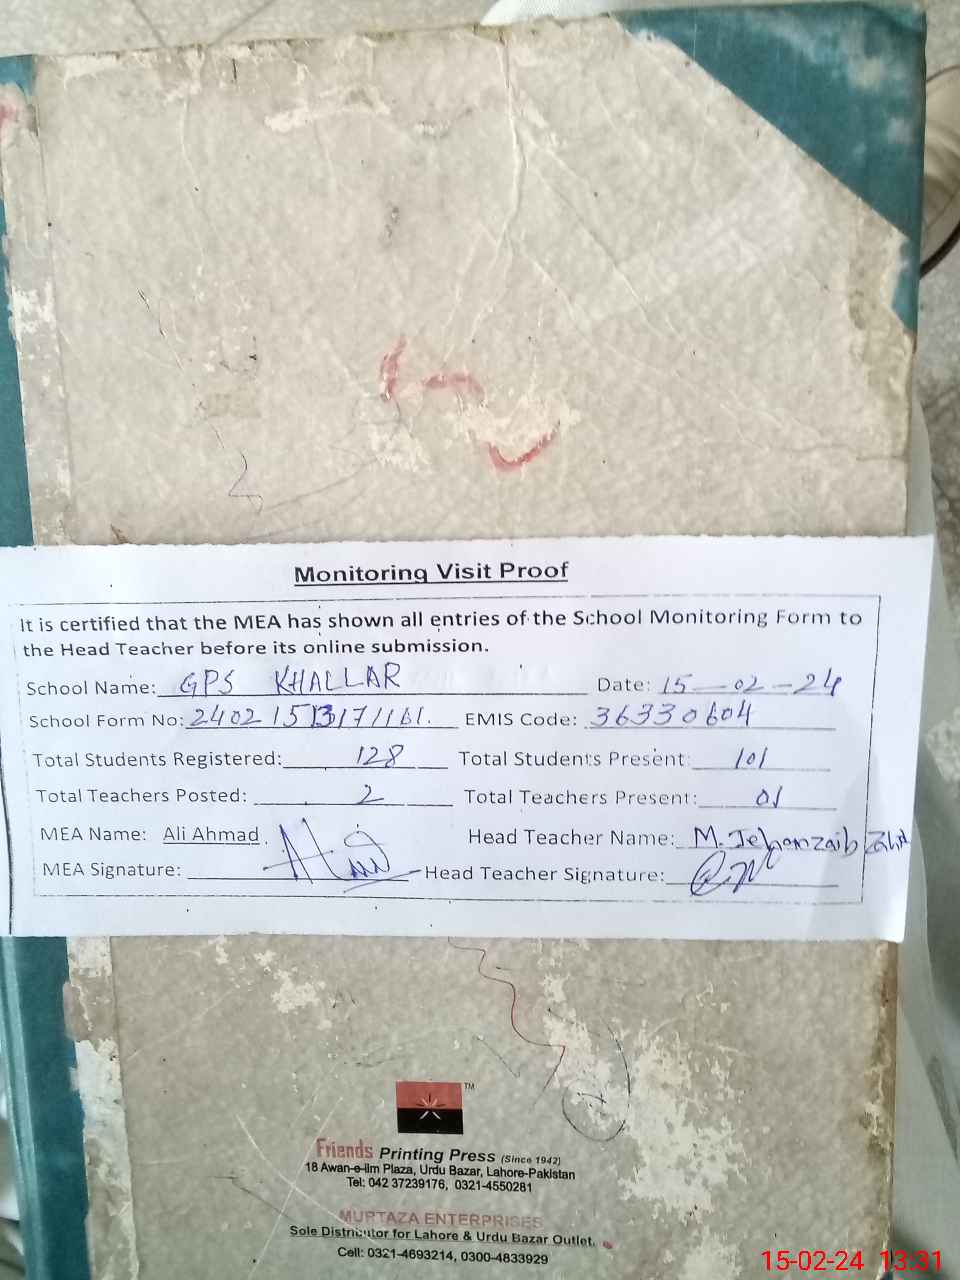 Monitoring Visit Proof
It is certified that the MEA has shown all entries of the School Monitoring Form to
the Head Teacher before its online submission.
School Name: GPS KHALLAR Date: 15-02-24
School Form No: 240215131711161. EMIS Code: 36330604
Total Students Registered: 128 Total Students Present: 101
Total Teachers Posted: 2 Total Teachers Present: 01
MEA Name: Ali Ahmad. Head Teacher Name: M. Jehanzaib
MEA Signature: Head Teacher Signature:
TM
Friends Printing Press (Since 1942)
18 Awan-e-ilm Plaza, Urdu Bazar, Lahore-Pakistan
Tel: 042 37239176, 0321-4550281
MURTAZA ENTERPRISES
Sole Distributor for Lahore & Urdu Bazar Outlet.
Cell: 0321-4693214, 0300-4833929
15-02-24 13:31